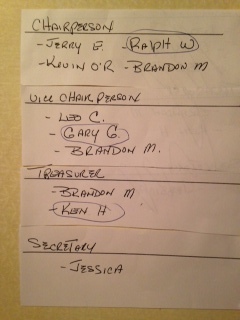 CHAIRPERSON
- JERRY E. - RALPH W
- KEVIN O'R - BRANDON M
VICE CHAIRPERSON
- LEO C.
- GARY G.
- BRANDON M.
TREASURER
- BRANDON M
- KEN H
SECRETARY
- JESSICA